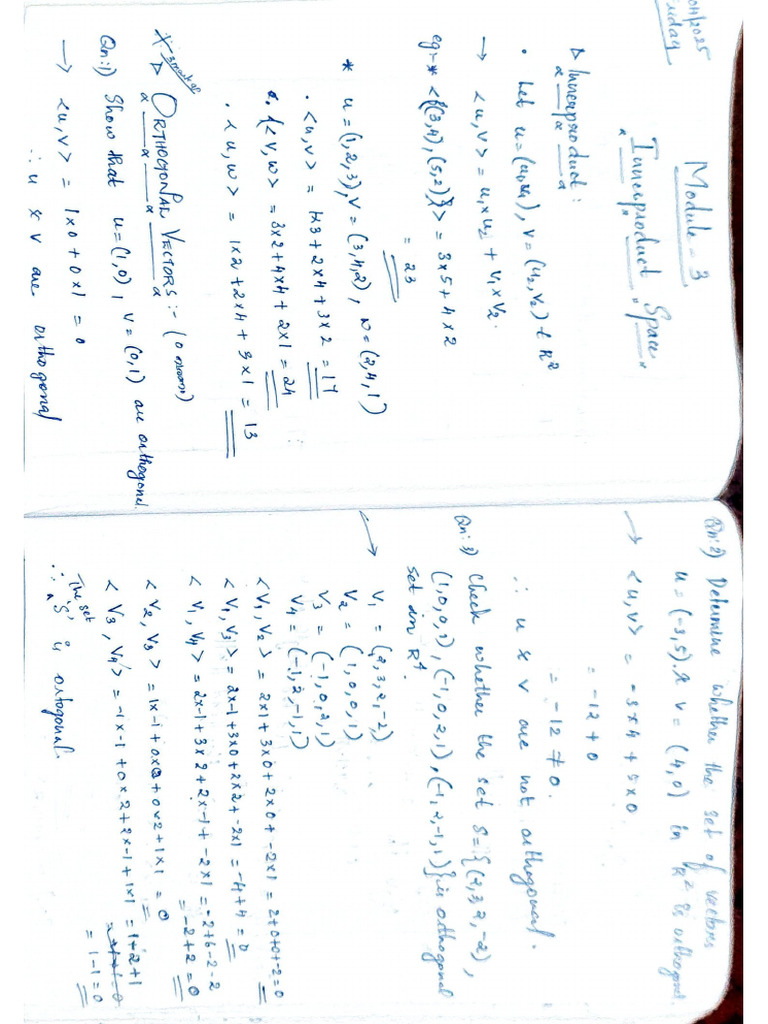 Module - 3
Innerproduct Space
▷ Innerproduct :
• Let u = (u₁,v₁), v = (u₂, v₂) ∈ R²
→ <u, v> = u₁×u₂ + v₁×v₂.
eg:- * <{(3,4), (5,2)}> = 3×5 + 4×2
= 23
* u = (1,2,3), v = (3,4,2), w = (2,4,1)
• <u,v> = 1×3 + 2×4 + 3×2 = 17
• <v,w> = 3×2 + 4×4 + 2×1 = 24
• <u,w> = 1×2 + 2×4 + 3×1 = 13
▷ ORTHOGONAL VECTORS :-
Qn:1) Show that u = (1,0), v = (0,1) are orthogonal.
→ <u,v> = 1×0 + 0×1 = 0
∴ u & v are orthogonal
Qn:2) Determine whether the set of vectors
u = (-3,5) & v = (4,0) in R² is orthogonal
→ <u,v> = -3×4 + 5×0
= -12+0
= -12 ≠ 0.
∴ u & v are not orthogonal.
Qn:3) Check whether the set S = {(2,3,2,-2),
(1,0,0,1), (-1,0,2,1), (-1,2,-1,1)} is orthogonal
set in R⁴.
→ V₁ = (2,3,2,-2)
V₂ = (1,0,0,1)
V₃ = (-1,0,2,1)
V₄ = (-1,2,-1,1)
<V₁,V₂> = 2×1 + 3×0 + 2×0 + -2×1 = 2+0+0+-2=0
<V₁,V₃> = 2×-1 + 3×0 + 2×2 + -2×1 = -4+4 = 0
<V₁,V₄> = 2×-1 + 3×2 + 2×-1 + -2×1 = -2+6-2-2
= -2+2 = 0
<V₂,V₃> = 1×-1 + 0×0 + 0×2 + 1×1 = 0
<V₃,V₄> = -1×-1 + 0×2 + 2×-1 + 1×1 = 1+2+1
= 1-1 = 0
∴ The set 'S' is ortogonal.